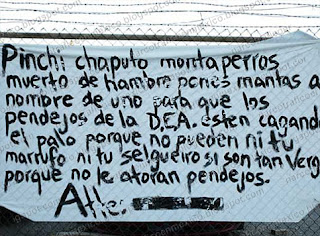 Pinchi chaputo monta perros
muerto de hambre pones mantas a
nombre de uno para que los
pendejos de la D.E.A. esten cagando
el palo porque no pueden ni tu
marrufo ni tu selgueiro si son tan Verga
porque no le atoran pendejos.
Atte: